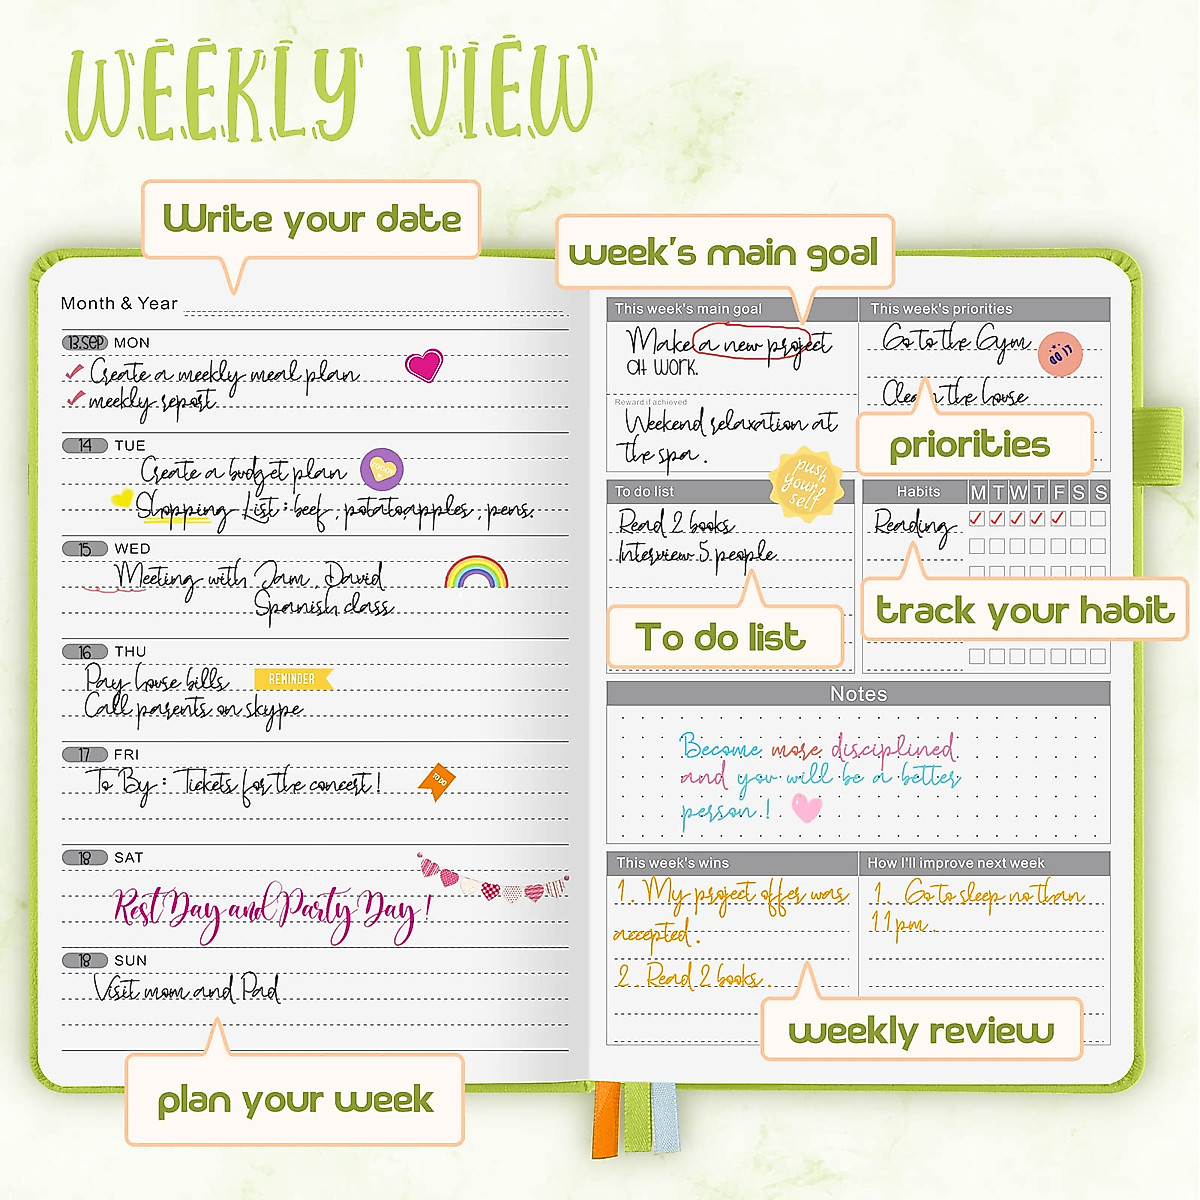 WEEKLY VIEW
Write your date
week's main goal
Month & Year
13.SEP MON
Create a weekly meal plan
weekly report
14 TUE
Create a budget plan
Shopping List : beef, potato,apples, pens.
15 WED
Meeting with Jam, David
Spanish class
16 THU
Pay house bills
REMINDER
Call parents on skype
17 FRI
To By : Tickets for the concert !
TO DO
18 SAT
Rest Day and Party Day !
18 SUN
Visit mom and Dad
plan your week
This week's main goal
Make a new project
at work.
Reward if achieved
Weekend relaxation at
the spa.
This week's priorities
Go to the Gym
DO IT
Clean the house
priorities
push
your
self
To do list
Read 2 books
Interview 5 people
To do list
Habits M T W T F S S
Reading
track your habit
Notes
Become more disciplined
and you will be a better
person !
This week's wins
1. My project offer was
accepted.
2. Read 2 books.
How I'll improve next week
1. Go to sleep no than
11pm.
weekly review